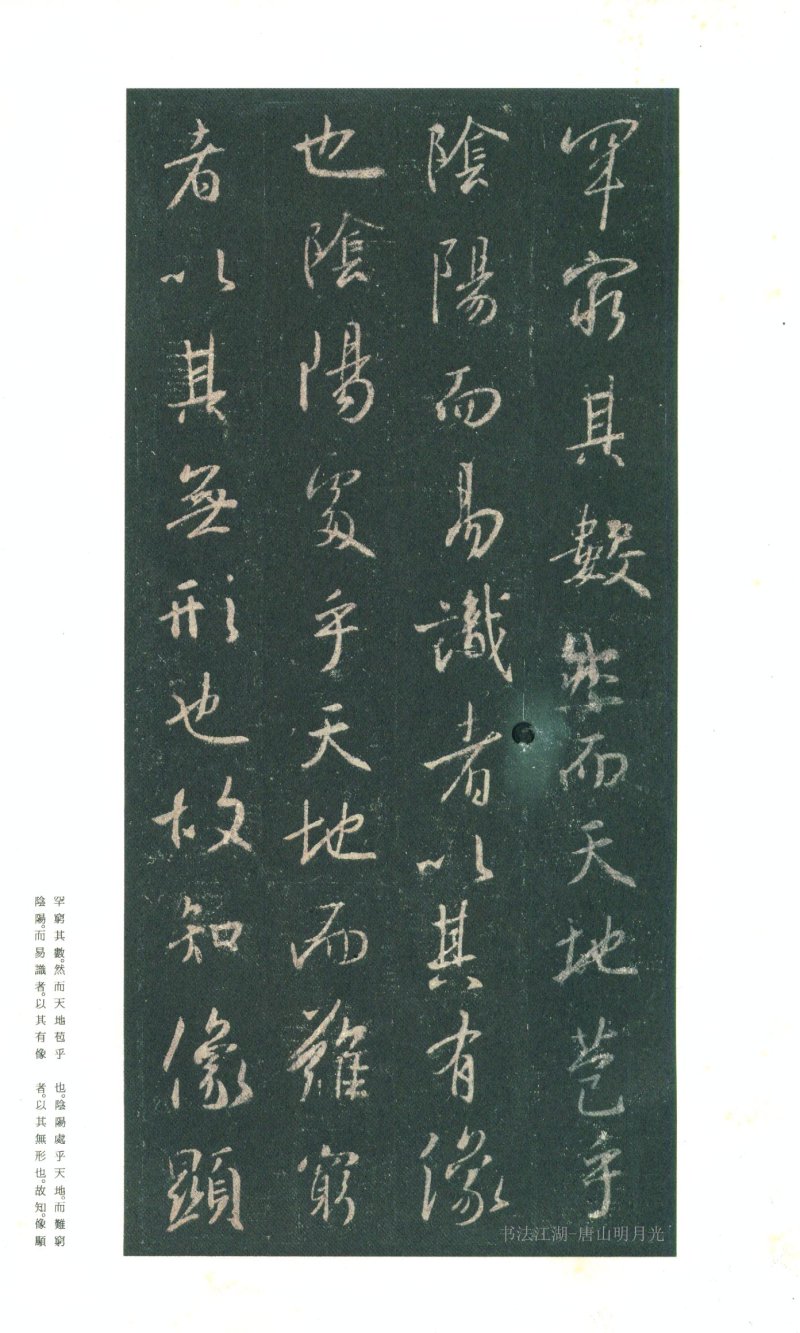 罕窮其數然而天地苞乎
陰陽而易識者以其有像
也陰陽處乎天地而難窮
者以其無形也故知像顯
罕窮其數。然而天地苞乎
陰陽。而易識者。以其有像
也。陰陽處乎天地。而難窮
者。以其無形也。故知。像顯
书法江湖-唐山明月光